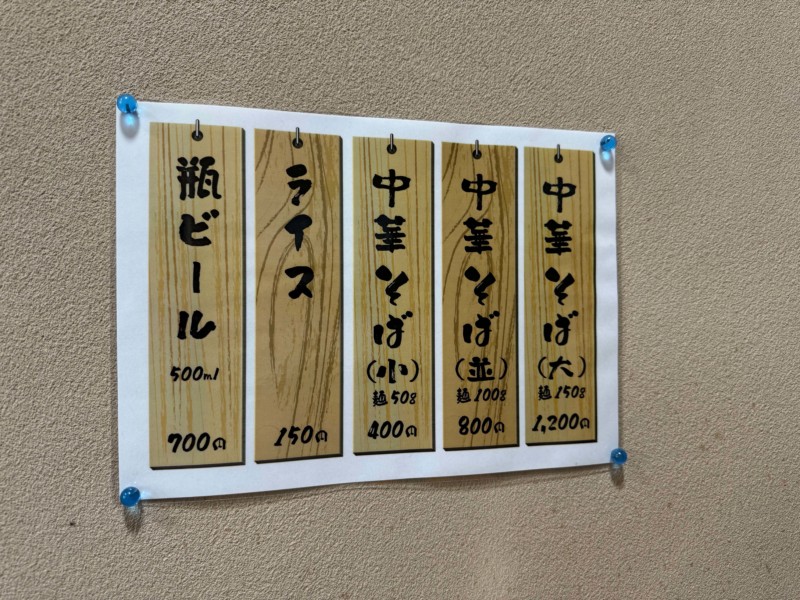 中華そば
(大)
麺150g
1,200円
中華そば
(並)
麺100g
800円
中華そば
(小)
麺50g
400円
ライス
150円
瓶ビール
500ml
700円